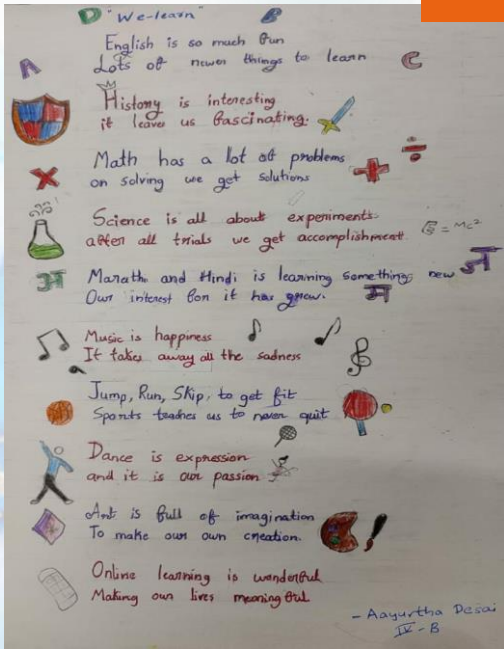 D "We-learn" B
A English is so much fun
Lots of newer things to learn C
History is interesting
it leaves us fascinating.
Math has a lot of problems
on solving we get solutions
Science is all about experiments.
after all trials we get accomplishment. E = Mc²
अ Marathi and Hindi is learning something new ज
Our interest for it has grew. म
Music is happiness
It takes away all the sadness
Jump, Run, Skip, to get fit
Sports teaches us to never quit
Dance is expression
and it is our passion
Art is full of imagination
To make our own creation.
Online learning is wonderful
Making our lives meaningful
- Aayurtha Desai
IV - B